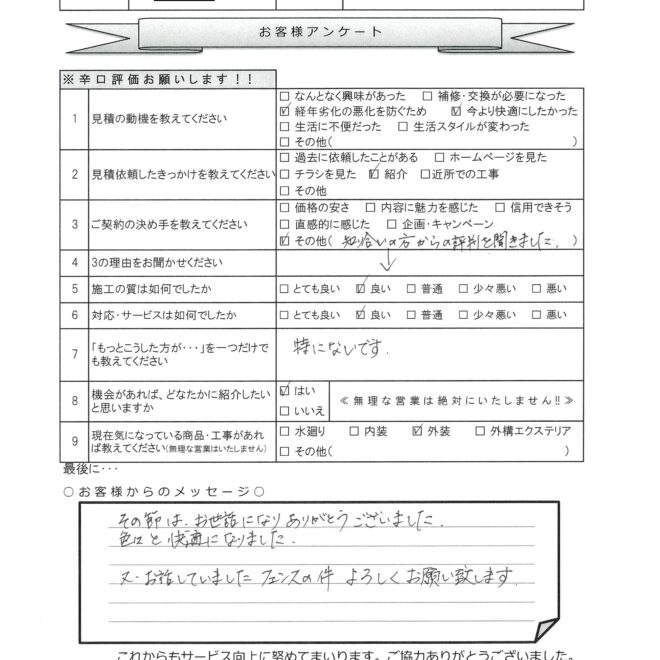 お客様アンケート
※辛口評価お願いします！！
1 見積の動機を教えてください
□なんとなく興味があった □補修・交換が必要になった
☑経年劣化の悪化を防ぐため ☑今より快適にしたかった
□生活に不便だった □生活スタイルが変わった
□その他( )
2 見積依頼したきっかけを教えてください
□過去に依頼したことがある □ホームページを見た
□チラシを見た ☑紹介 □近所での工事
□その他
3 ご契約の決め手を教えてください
□価格の安さ □内容に魅力を感じた □信用できそう
□直感的に感じた □企画・キャンペーン
☑その他( 知り合いの方からの評判を聞きました。 )
4 3の理由をお聞かせください
↓
5 施工の質は如何でしたか □とても良い ☑良い □普通 □少々悪い □悪い
6 対応・サービスは如何でしたか □とても良い ☑良い □普通 □少々悪い □悪い
7 「もっとこうした方が・・・」を一つだけで
も教えてください
特にないです.
8 機会があれば、どなたかに紹介したい
と思いますか
☑はい
□いいえ
≪無理な営業は絶対にいたしません!!≫
9 現在気になっている商品・工事があれ
ば教えてください(無理な営業はいたしません)
□水廻り □内装 ☑外装 □外構エクステリア
□その他( )
最後に・・・
○お客様からのメッセージ○
その節は、お世話になりありがとうございました.
色々と快適になりました.
又、お話していましたフェンスの件 よろしくお願い致します.
これからもサービス向上に努めてまいります。ご協力ありがとうございました。